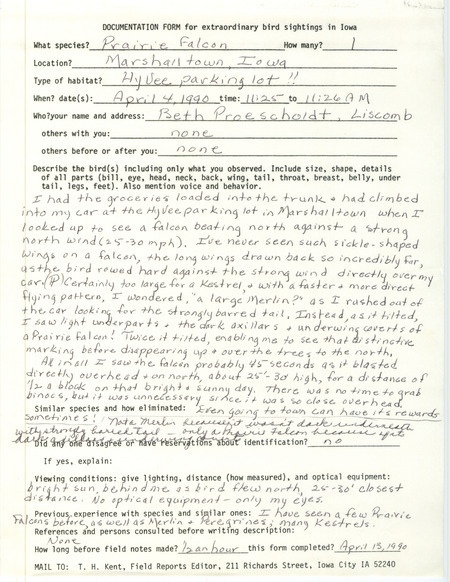 DOCUMENTATION FORM for extraordinary bird sightings in Iowa
What species? Prairie Falcon How many? 1
Location? Marshalltown, Iowa
Type of habitat? HyVee parking lot !!
When? date(s): April 4, 1990 time: 11:25 to 11:26 AM
Who? your name and address: Beth Proescholdt, Liscomb
others with you: none
others before or after you: none
Describe the bird(s) including only what you observed. Include size, shape, details
of all parts (bill, eye, head, neck, back, wing, tail, throat, breast, belly, under
tail, legs, feet). Also mention voice and behavior.
I had the groceries loaded into the trunk & had climbed
into my car at the HyVee parking lot in Marshalltown when I
looked up to see a falcon beating north against a strong
north wind (25-30 mph). I've never seen such sickle-shaped
wings on a falcon, the long wings drawn back so incredibly far,
as the bird rowed hard against the strong wind directly over my
car. (P) Certainly too large for a Kestrel, & with a faster & more direct
flying pattern, I wondered, "a large Merlin?" as I rushed out of
the car looking for the strongly barred tail. Instead, as it tilted,
I saw light underparts & the dark axillars & underwing coverts of
a Prairie Falcon! Twice it tilted, enabling me to see that distinctive
marking before disappearing up & over the trees to the north.
All in all I saw the falcon probably 45 seconds as it blasted
directly overhead & on north, about 25'-30' high, for a distance of
1/2 a block on that bright & sunny day. There was no time to grab
binocs, but it was unnecessary since it was so close overhead.
Similar species and how eliminated: Even going to town can have its rewards
sometimes! Not a Merlin because it wasn't dark underneath
with strongly barred tail - only
Did any one disagree or have reservations about identification? no
If yes, explain:
Viewing conditions: give lighting, distance (how measured), and optical equipment:
bright sun, behind me as bird flew north, 25-30' closest
distance. No optical equipment - only my eyes.
Previous experience with species and similar ones: I have seen a few Prairie
Falcons before, as well as Merlin & Peregrines; many Kestrels.
References and persons consulted before writing description:
None
How long before field notes made? 1/2 an hour this form completed? April 13, 1990
MAIL TO: T. H. Kent, Field Reports Editor, 211 Richards Street, Iowa City IA 52240